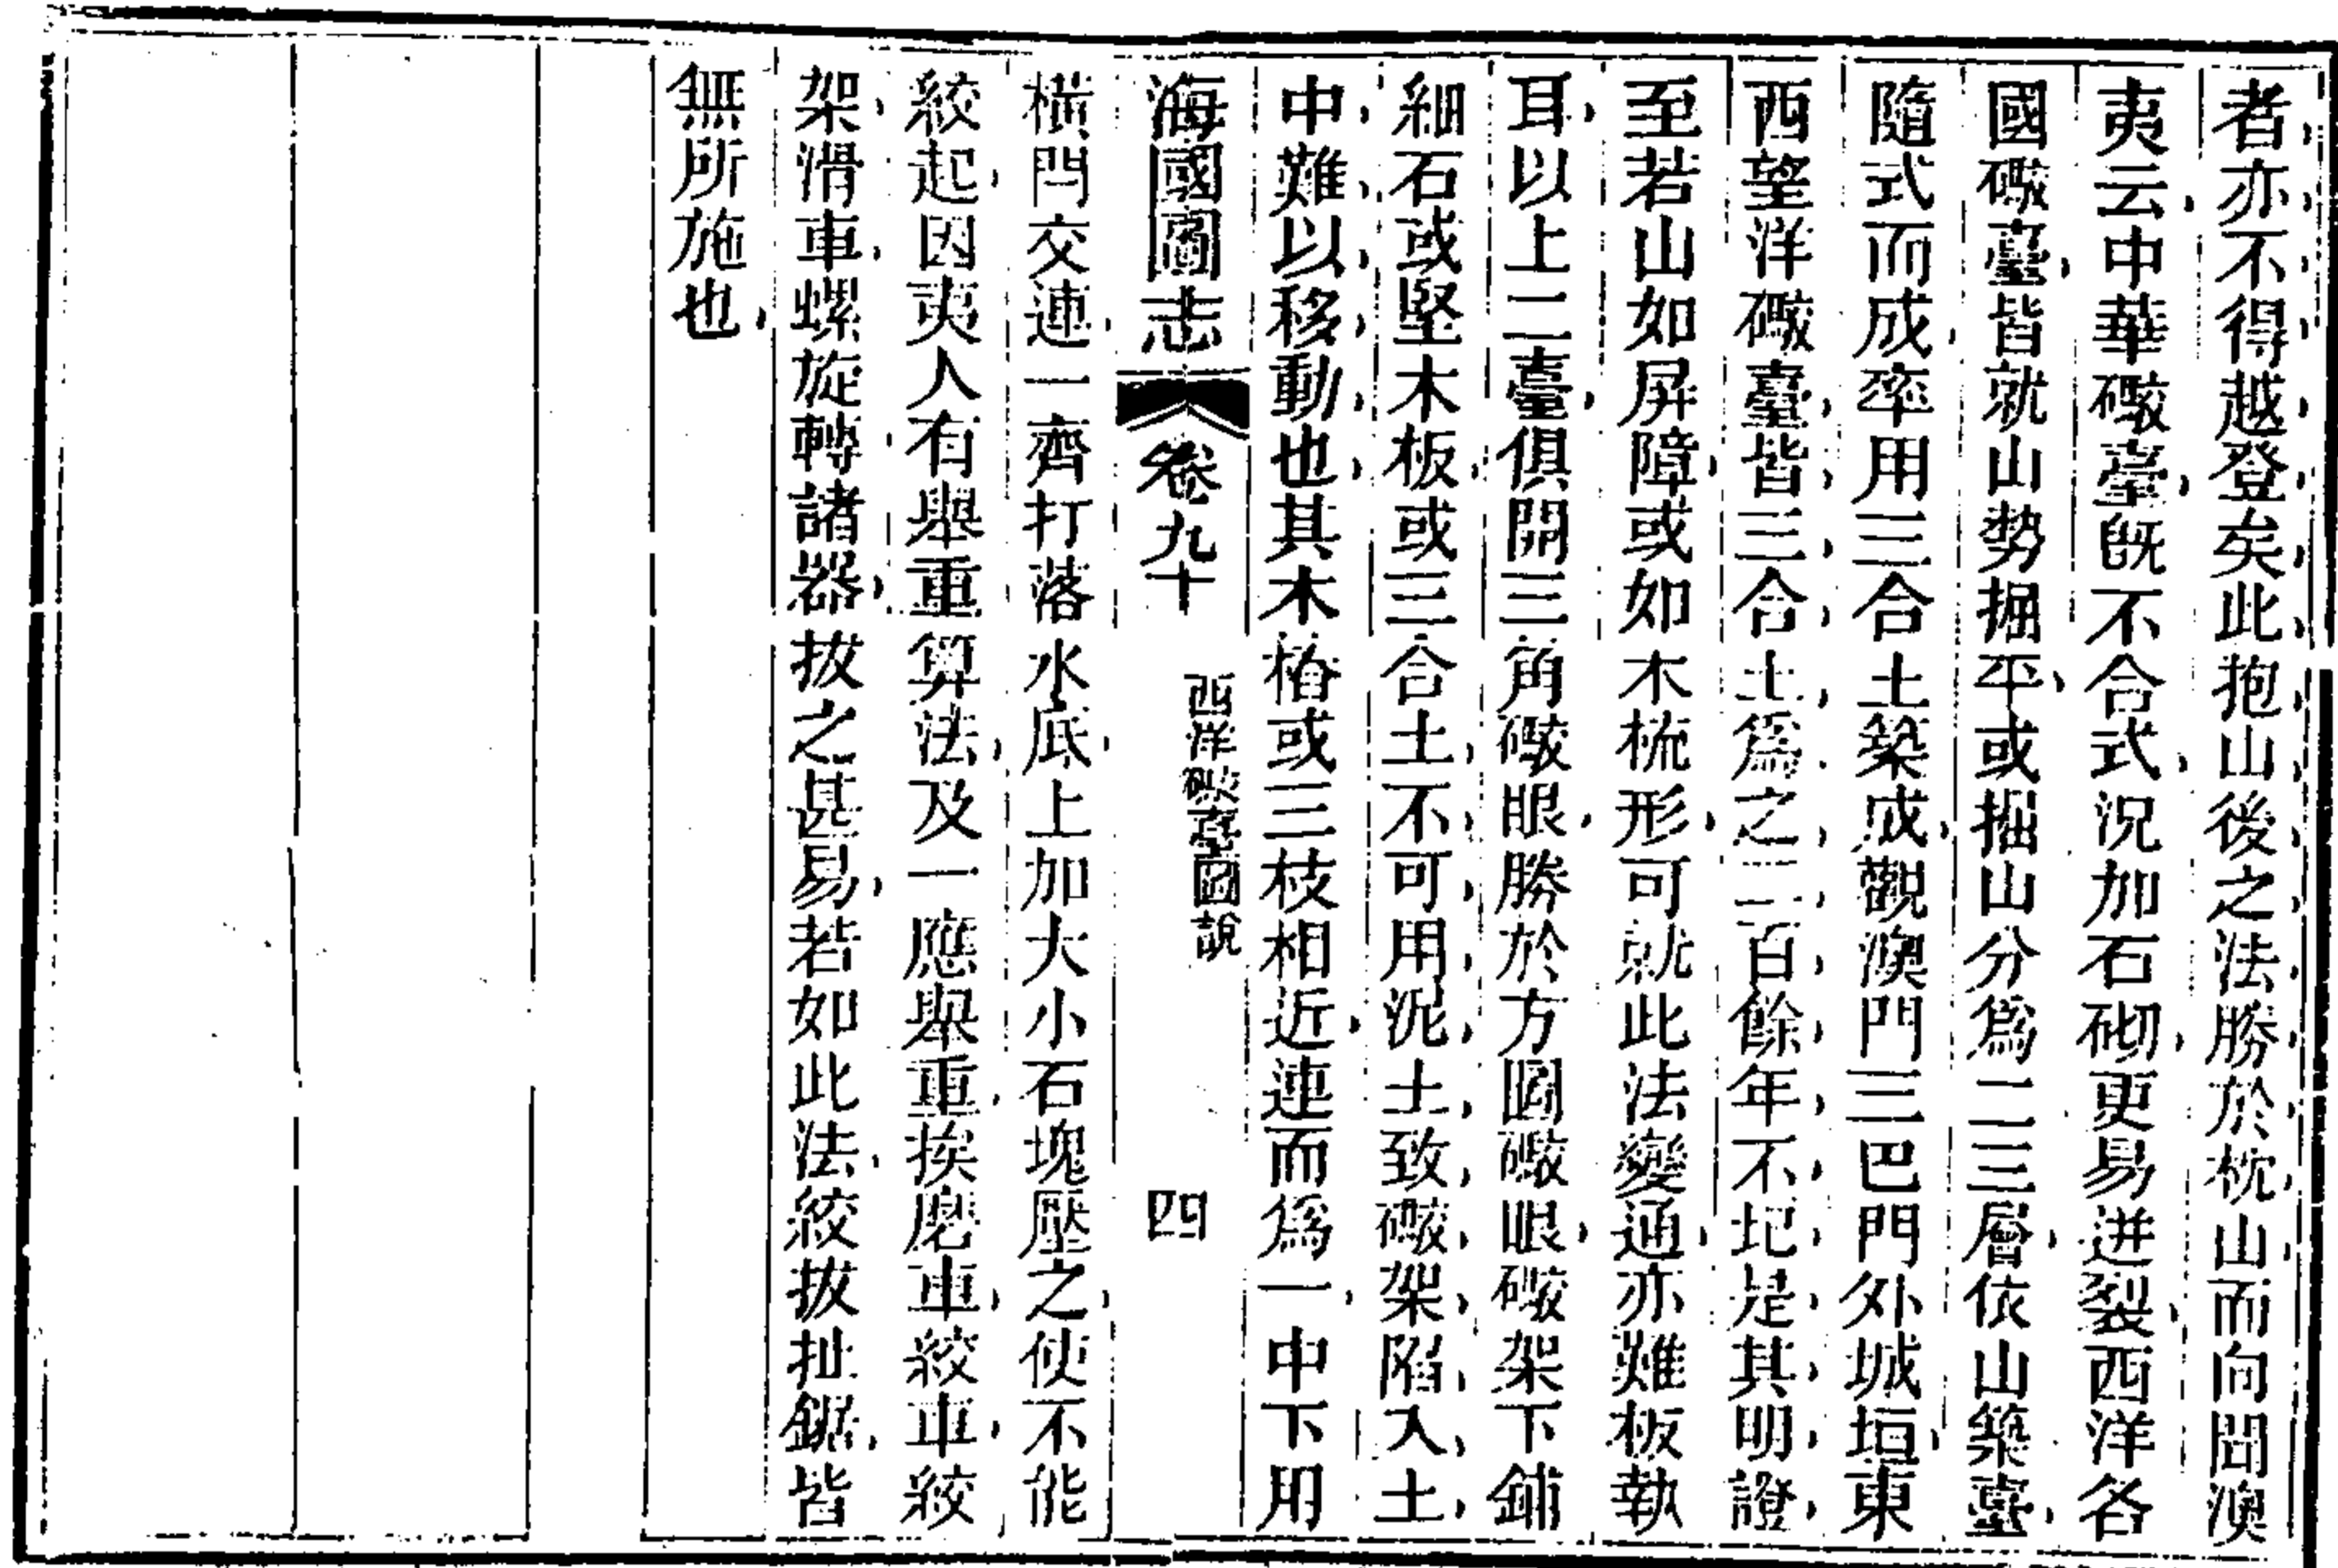 者亦不得越登矣此抱山後之法勝於枕山而向問澳
夷云中華礮臺旣不合式況加石砌更易迸裂西洋各
國礮臺皆就山勢掘平或掘山分爲二三層依山築臺
隨式而成率用三合土築成觀澳門三巴門外城垣東
西望洋礮臺皆三合土爲之二百餘年不圮是其明證
至若山如屏障或如木梳形可就此法變通亦難板執
耳以上二臺俱開三角礮眼勝於方圓礮眼礮架下鋪
細石或堅木板或三合土不可用泥土致礮架陷入土
中難以移動也其木樁或三枝相近連而爲一中下用
海國圖志 卷九十 西洋礮臺圖說 四
橫閂交連一齊打落水底上加大小石塊壓之使不能
絞起因夷人有舉重算法及一應舉重挨磨車絞車絞
架滑車螺旋轉諸器拔之甚易若如此法絞拔扯鋸皆
無所施也